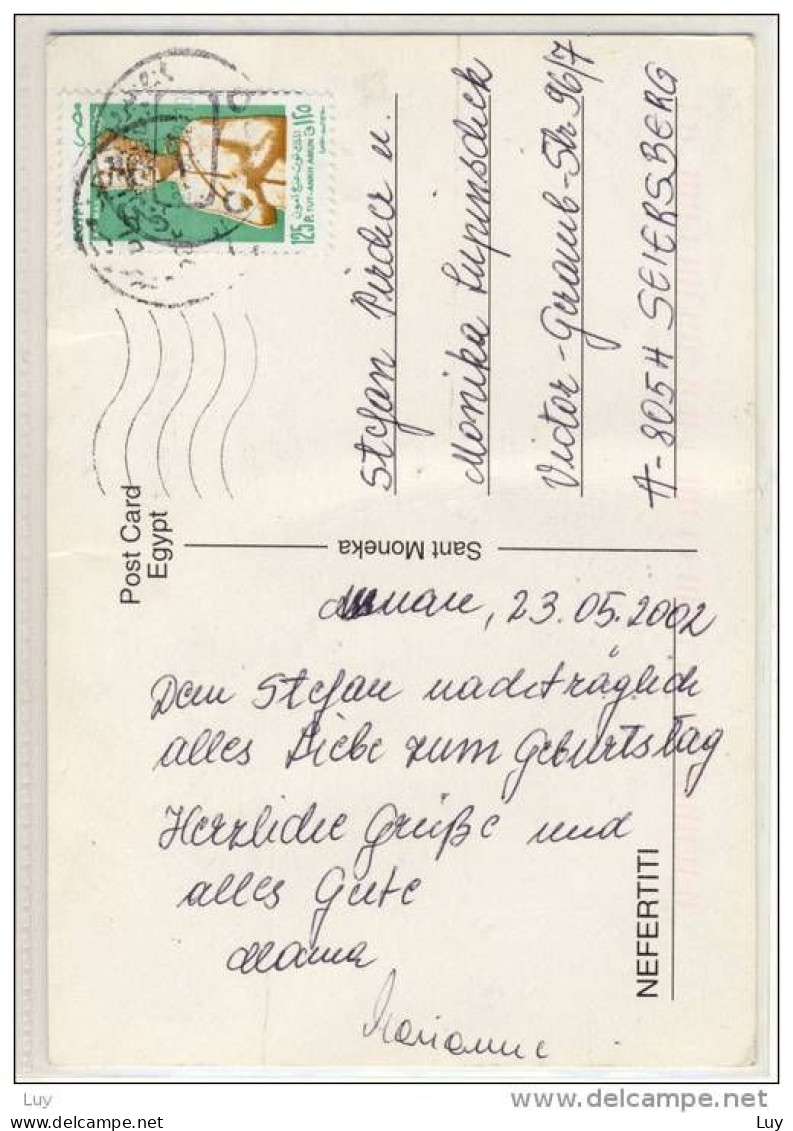 Post Card
Egypt
Sant Moneka
NEFERTITI
مصر
125 P. TUT-ANKH AMUN
١٢٥
Stefan u.
Monika
Victor-Geramb-Str. 96/7
A-8054 SEIERSBERG
23.05.2002
Dem Stefan nachträglich
alles Liebe zum Geburtstag
Herzliche Grüße und
alles Gute
Mama
Marianne
Luy
delcampe.net
Luy
Luy